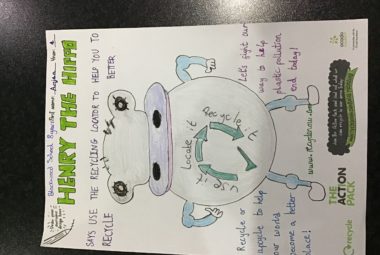 HENRY THE HIPPO
SAYS USE THE RECYCLING LOCATOR TO HELP YOU TO
RECYCLE BETTER
Recycle it
Locate it
Use it
Recycle or
upcycle to help
our world
become a better
place!
Let's fight our
way to help
plastic pollution
end today!
www.recyclenow.com
THE
ACTION
PACK
recycle
ocado